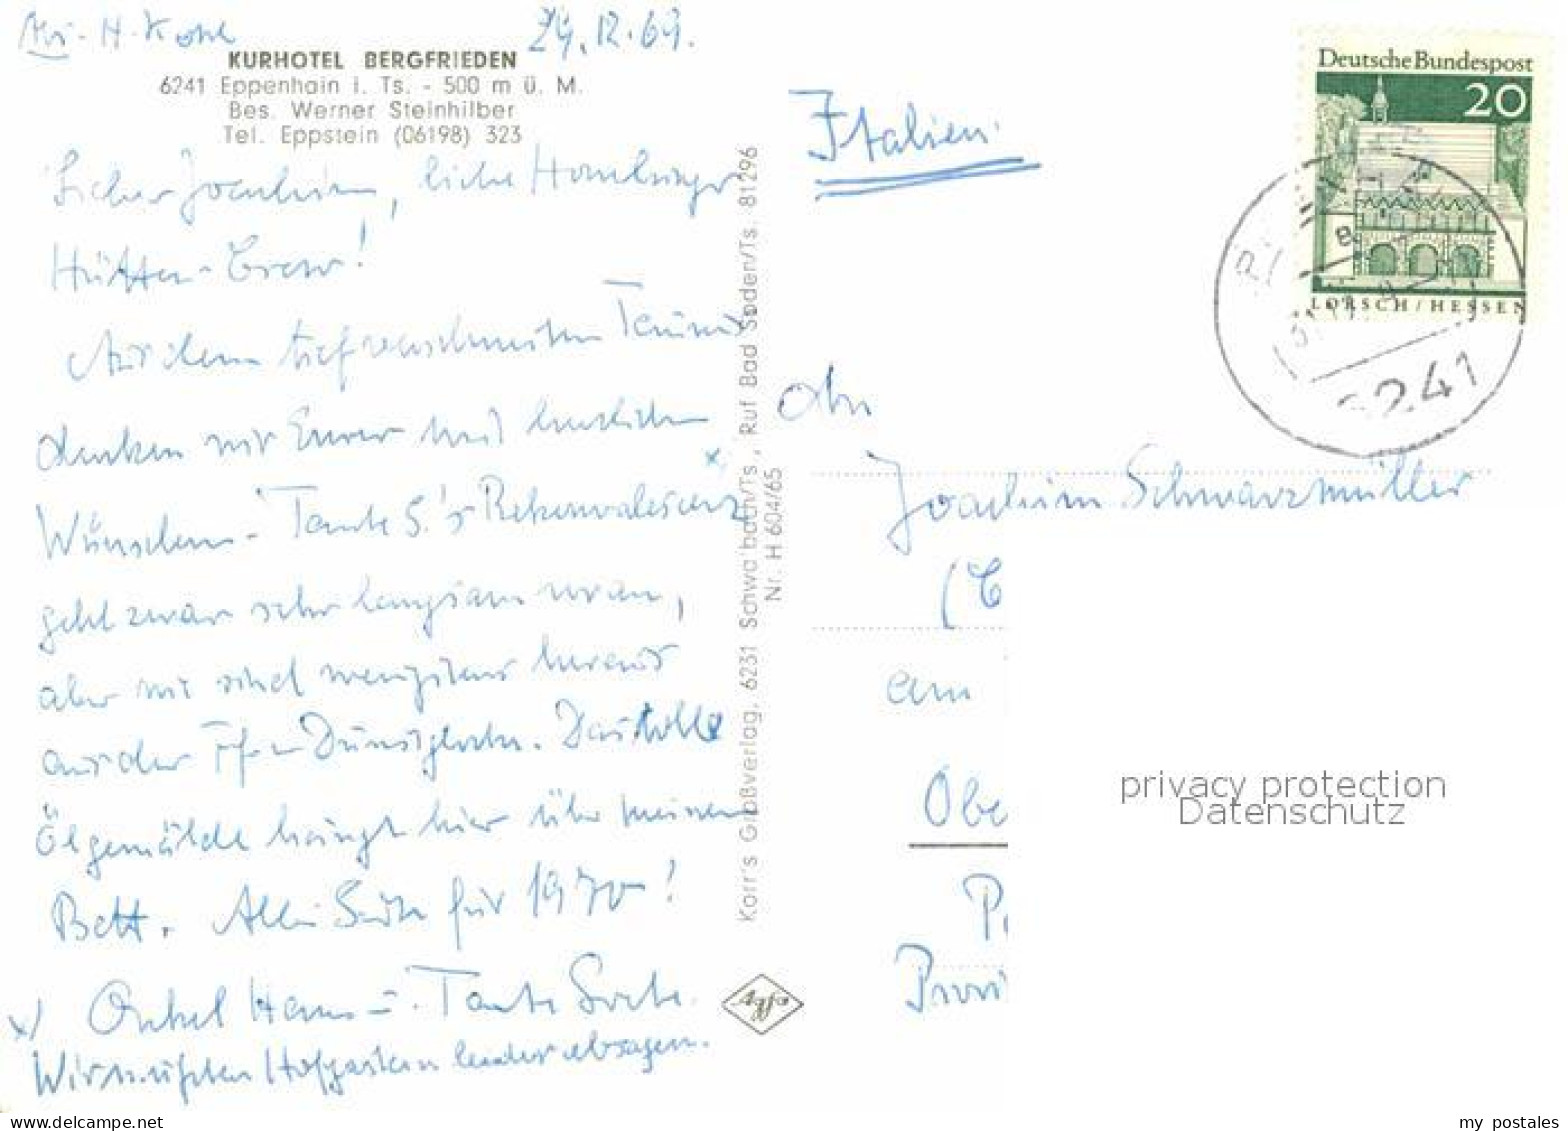 H. Kohl 29.12.69.
KURHOTEL BERGFRIEDEN
6241 Eppenhain i. Ts. - 500 m ü. M.
Bes. Werner Steinhilber
Tel. Eppstein (06198) 323
Lieber Joachim, liebe Homburger
Hütten-Crew!
Aus dem tief verschneiten Taunus
denken wir Eurer mit herzlichen
Wünschen - Tante S.'s Rekonvaleszenz x
geht zwar sehr langsam voran,
aber wir sind wenigstens heraus
aus der Ffm Dunstglocke. Das tolle
Ölgemälde hängt hier über meinem
Bett. Alles Gute für 1970!
Onkel Hans u. Tante
x) Wir mußten Hofgastein leider absagen.
Korr's Großverlag, 6231 Schwalbach/Ts., Ruf Bad Soden/Ts. 81296
Nr. H 604/65
Agfa
Italien
Deutsche Bundespost
20
LORSCH/HESSEN
6241
An
Joachim Schwarzmüller
(C
am
Obe
P
Provi
privacy protection
Datenschutz
my postales